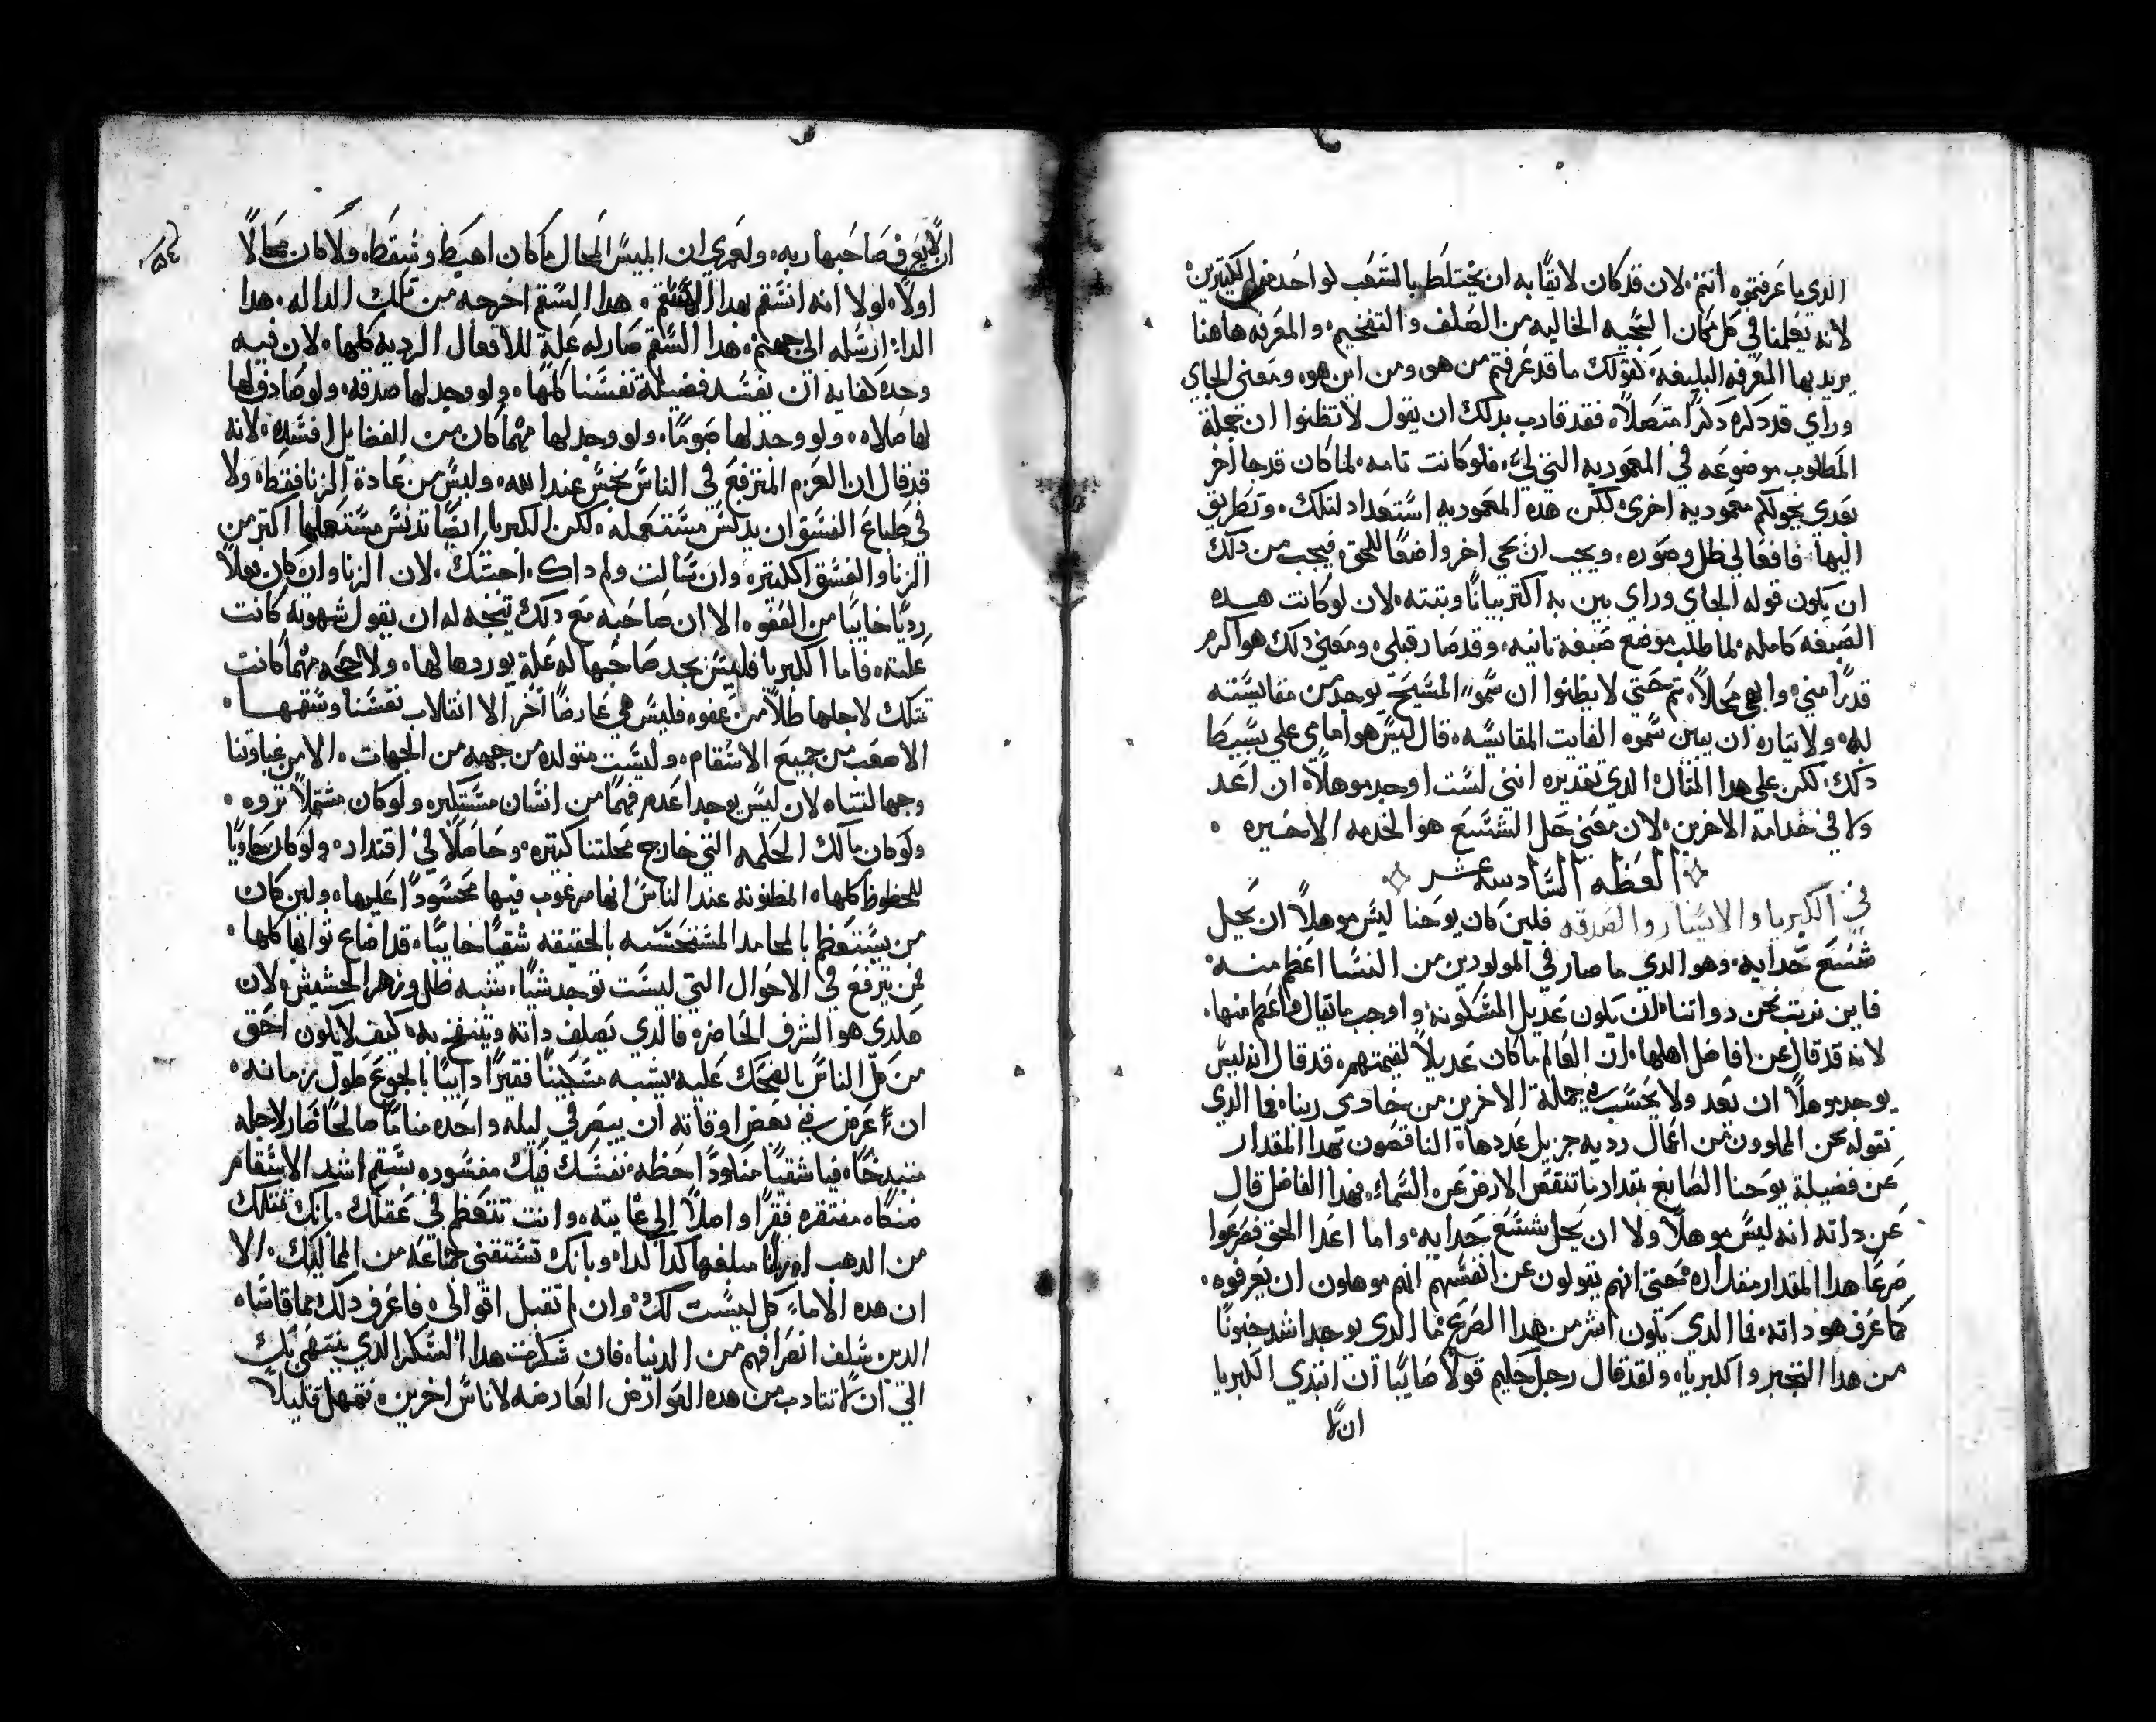 الدي ما عرفتموه انتم. لان قد كان لايقًا به ان يختلط بالشعب لواحد من الكتيرين
لانه يعلمنا في كل مكان السجيه الخاليه من الصلف والتفخيم. والمعرفه هاهنا
يريد بها المعرفه البليغه. كقولك ما قد عرفتم من هو ومن اين هو. ومعنى الجاي
وراي قد دكره دكرًا متصلاً. فقد قارب بدلك ان يقول لا تظنوا ان جملة
المطلوب موضوعه في المعموديه التي لي. فلو كانت تامه لما كان قد جا اخر
بعدي يخولكم معموديه اخرى. لكن هده المعموديه استعداد لتلك. وتطريق
اليها. فافعالي ظل وصوره. ويجب ان يجي اخر واضعًا للحق. فيجب من دلك
ان يكون قوله الجاي وراي بين به اكتر بيانًا وبتته. لان لو كانت هده
الصبغه كامله لما طلب موضع صبغه تانيه. وقد صار قبلي. ومعنى دلك هو اكرم
قدرًا مني. وابهى محلاً. تم حتى لا يظنوا ان سمو المسيح يوجد من مقايسته
له. ولايتاره ان يبين سموه الفايت المقايسه. قال ليس هو امامي علي بسيطا
دلك. لكن على هدا المتال الدي تقديره انني لست اوجد موهلاً. ان اعد
ولا في خدامة الاخرين. لان معنى حل الشسع هو الخدمه الاخيره.
العظه السادسه عشر
في الكبريا والايسار والصدقه فلين كان يوحنا ليس موهلاً ان يحل
شسع حدايه. وهو الدي ما صار في المولودين من النسا اعظم منه.
فاين نرتب نحن دواتنا. لان يكون عديل المسكونه. واوجب ما يقال واعظم منها.
لانه قد قال عن افاضل اهلها. ان العالم ما كان عديلاً لقيمتهم. قد قال انه ليس
يوجد موهلاً ان يعد ولا يحسب في جملة الاخرين من خادمي ربنا. فما الدي
نقوله نحن المملوون من اعمال رديه جزيل عددها. الناقصون بهدا المقدار
عن فضيلة يوحنا الصابغ بمقدار ما تنقص الارض عن السماء. فهدا الفاضل قال
عن داته انه ليس موهلاً ولا ان يحل شسع حدايه. واما اعدا الحق فصرعوا
صرعًا هدا المقدار مقداره. حتى انهم يقولون عن انفسهم انهم موهلون ان يعرفوه.
كما عرف هو داته. فما الدي يكون اشر من هدا الصرع. ما الدي يوجد اشد جنونًا
من هدا التجبر والكبرياء. ولقد قال رجل حليم قولاً صايبًا ان ابتدي الكبريا
ان لا
ان لا يعرف صاحبها ربه. ولعمري ان ابليس المحال ما كان اهبط وسقط. ولا كان محالاً
اولاً. لولا انه انسقم بهدا السقم. هدا السقم اخرجه من تلك الداله. هدا
الداء ارسله الى جهنم. هدا السقم صار له علة للافعال الرديه كلها. لان فيه
وحده كفايه ان يفسد فضيلة نفسنا كلها. ولو وجد لها صدقه. ولو صادف لها
لها صلاه. ولو وجد لها صومًا. ولو وجد لها مهما كان من الفضايل افسده. لانه
قد قال ان العزم المترفع في الناس نجس عند الله. وليس من عادة الزنا فقط. ولا
في طباع الفسق ان يدنس مستعمله. لكن الكبريا ايضًا تدنس مستعملها اكتر من
الزنا والفسق اكتره. وان سالت ولم داك. اجبتك. لان الزنا وان كان فعلاً
رديًا خايبًا من العفوه. الا ان صاحبه مع دلك يتجه له ان يقول شهوته كانت
علته. فاما الكبريا فليس يجد صاحبها له علة يوردها لها. ولا حجه مهما كانت
تتلك لاجلها ظلاً من عفوه. فليس هي عارضًا اخر الا انقلاب نفسنا وسقمها.
الاصعب من جميع الاسقام. وليست متولده من جهه من الجهات. الا من غباوتنا
وجهالتناه. لان ليس يوجد اعدم فهمًا من انسان مستكبره ولو كان مشتملاً تروه.
ولو كان مالك الحكمه التي خارج محلتنا كتيره. وحاصلاً في اقتدار. ولو كان حاويًا
للحظوظ كلها. المظنونه عند الناس انها مرغوب فيها محسودًا عليها. ولين كان
من يستعظم بالمحامد المستحسنه بالحقيقه شقيًا خايبًا. قد اضاع توابها كلها.
فمن يترفع في الاحوال التي ليست توجد شيًا. شبه ظل وزهر الحشيش. لان
هكدي هو الشرف الحاضر. فالدي يصلف داته وينتفخ به. كيف لا يكون احق
من كل الناس بالضحك عليه. يشبه مسكينًا فقيرًا دايبًا بالجوع طول زمانه.
ان عرض في بعض اوقاته ان يبصر في ليله واحده منامًا صالحًا صار لاجله
متبدخًا. فيا شقيًا منكودًا حظه. نفسك فيك مفسوده بسقم اشد الاسقام
ضنكًا. مفتقره فقرًا واصلاً الى غايته. وانت تتعظم في عقلك. بانك تمتلك
من الدهب اوزانًا مبلغها كدا كدا. وبانك تستقني جماعه من المماليك. الا
ان هده الاماء كل ليست لك. وان لم تقبل اقوالي. فاعرف دلك مما قاساه
الدين سلف انصرافهم من الدنيا. فان سكرت هدا السكر الدي ينتهي بك
الي ان لا تتادب من هده العوارض العارضه لاناس اخرين. فتمهل قليلاً